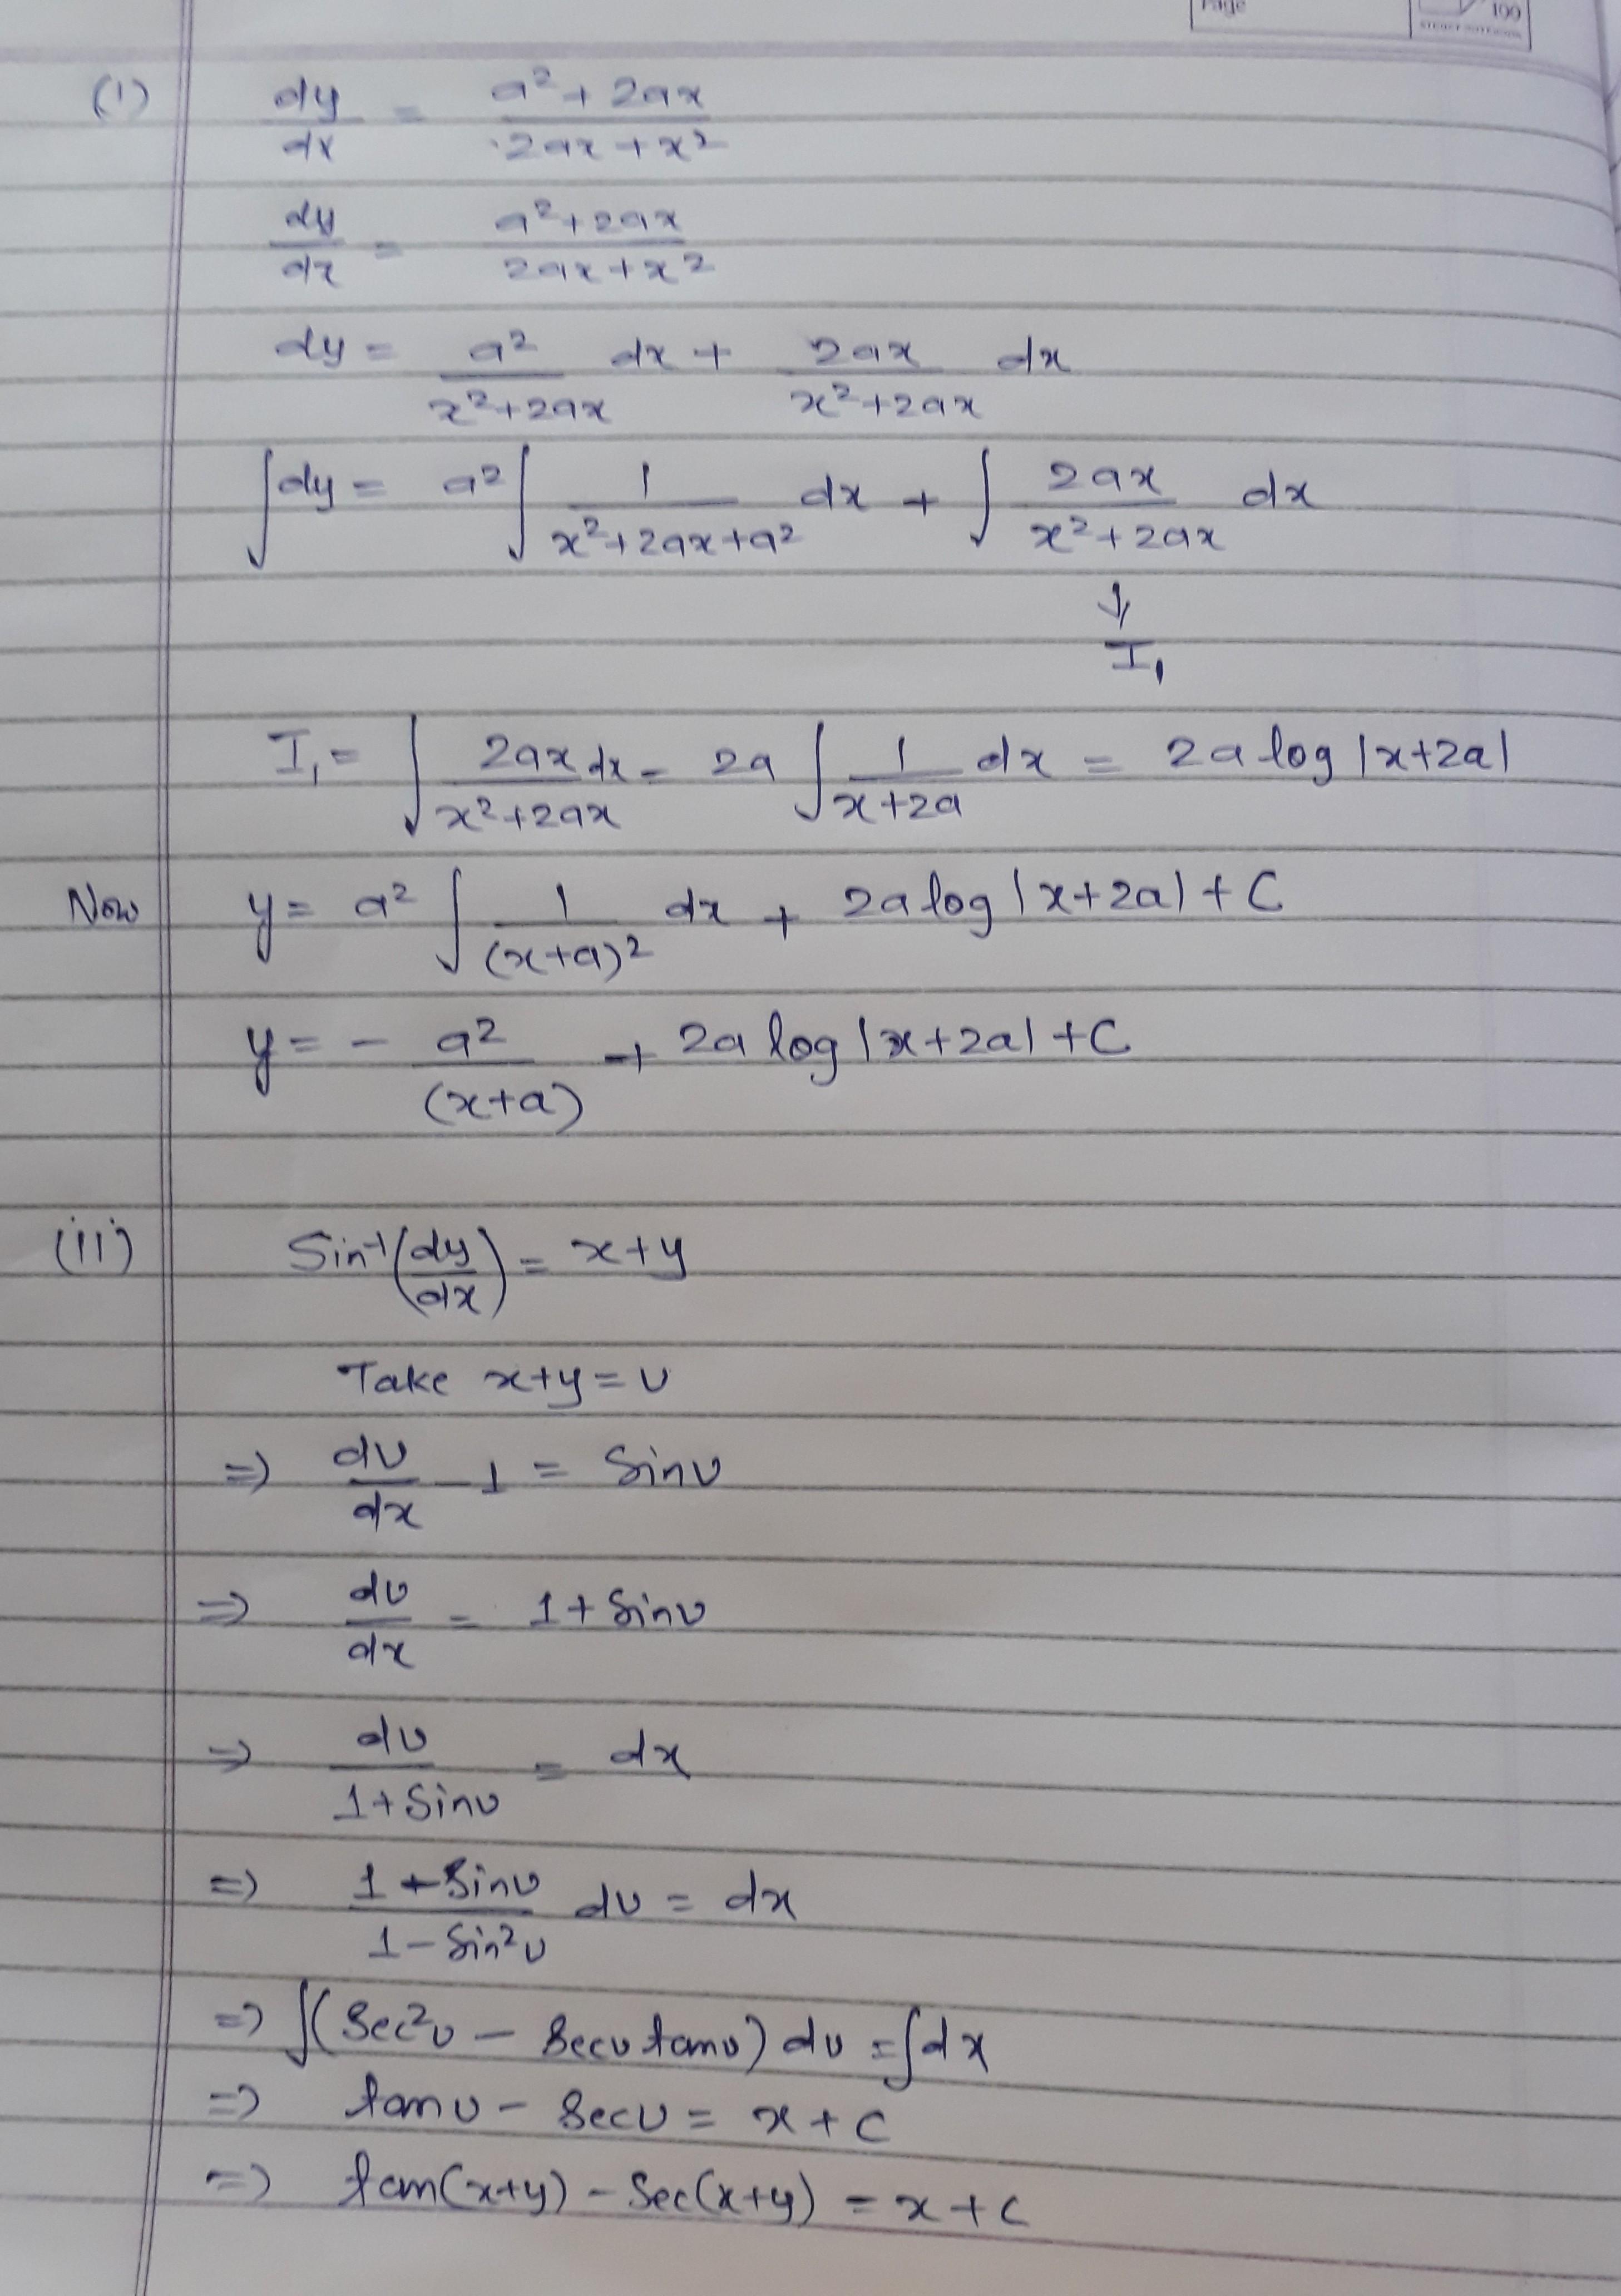 Page
100
(1) dy/dx = (a² + 2ax)/(2ax + x²)
dy/dx = (a² + 2ax)/(2ax + x²)
dy = a²/(x² + 2ax) dx + 2ax/(x² + 2ax) dx
∫dy = a² ∫ 1/(x² + 2ax + a²) dx + ∫ 2ax/(x² + 2ax) dx
↓
I₁
I₁ = ∫ 2ax dx/(x² + 2ax) = 2a ∫ 1/(x + 2a) dx = 2a log |x+2a|
Now y = a² ∫ 1/(x+a)² dx + 2a log |x+2a| + C
y = - a²/(x+a) + 2a log |x+2a| + C
(ii) Sin⁻¹(dy/dx) = x+y
Take x+y = v
⇒ dv/dx - 1 = Sinv
⇒ dv/dx = 1 + Sinv
⇒ dv/(1 + Sinv) = dx
⇒ (1 + Sinv)/(1 - Sin²v) dv = dx
⇒ ∫(Sec²v - Secv tanv) dv = ∫dx
⇒ tanv - Secv = x + C
⇒ tan(x+y) - Sec(x+y) = x + C